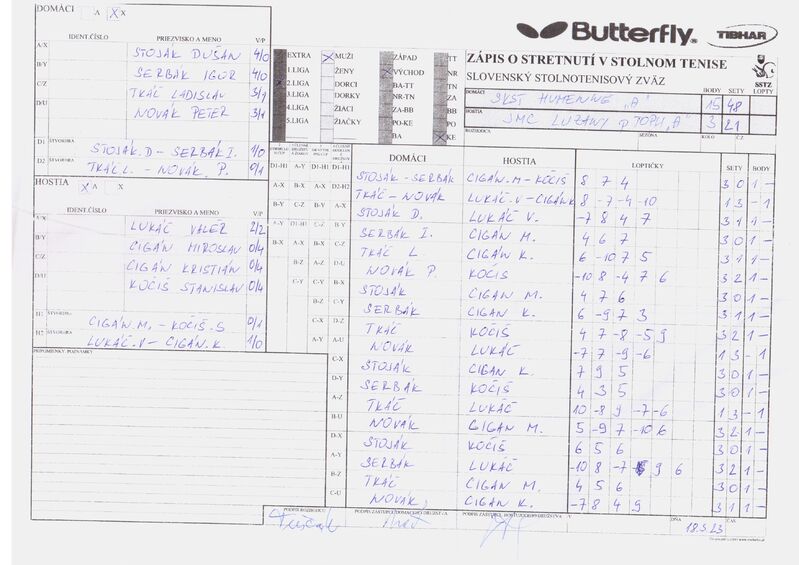 DOMÁCI A X
Butterfly TIBHAR
IDENT.ČÍSLO PRIEZVISKO A MENO V/P
A/X STOJÁK DUŠAN 4/0
B/Y SERBÁK IGOR 4/0
C/Z TKÁČ LADISLAV 3/1
D/U NOVÁK PETER 3/1
D1 ŠTVORHRA STOJÁK.D - SERBÁK I. 1/0
D2 ŠTVORHRA TKÁČ L. - NOVÁK. P. 0/1
HOSTIA A X
IDENT.ČÍSLO PRIEZVISKO A MENO V/P
A/X LUKÁČ VALÉR 2/2
B/Y CIGÁN MIROSLAV 0/4
C/Z CIGÁN KRISTIÁN 0/4
D/U KOČIŠ STANISLAV 0/4
H1 ŠTVORHRA CIGÁN.M. - KOČIŠ.S 0/1
H2 ŠTVORHRA LUKÁČ.V - CIGÁN.K. 1/0
PRIPOMIENKY, POZNÁMKY
EXTRA MUŽI ZÁPAD TT
1.LIGA ŽENY VÝCHOD NR
2.LIGA DORCI BA-TT TN
3.LIGA DORKY NR-TN ZA
4.LIGA ŽIACI ZA-BB BB
5.LIGA ŽIAČKY PO-KE PO
BA KE
ZÁPIS O STRETNUTÍ V STOLNOM TENISE
SLOVENSKÝ STOLNOTENISOVÝ ZVÄZ
SSTZ
BODY SETY LOPTY
DOMÁCI SKST HUMENNÉ "A" 15 48
HOSTIA 3 21
ROZHODCA SEZÓNA KOLO Č.Z.
DOMÁCI HOSTIA LOPTIČKY SETY BODY
D1-H1 A-Y D1-H1 D1-H1 STOJÁK - SERBÁK CIGÁN.M - KOČIŠ 8 7 4 3 0 1 -
A-X B-X A-X D2-H2 TKÁČ - NOVÁK LUKÁČ - V - CIGÁN K 8 -7 -4 -10 1 3 - 1
B-Y C-Z B-Y A-X STOJÁK D. LUKÁČ V. -7 8 4 7 3 1 1 -
A-Y D1-H1 C-Z B-Y SERBÁK I. CIGÁN M. 4 6 7 3 0 1 -
B-X A-X B-X C-Z TKÁČ L CIGÁN K. 6 -10 7 5 3 1 1 -
B-Z A-Z D-U NOVÁK P. KOČIŠ -10 8 -4 7 6 3 2 1 -
C-Y C-Y B-X STOJÁK CIGAN M. 4 7 6 3 0 1 -
B-Z C-Y SERBÁK CIGAN K. 6 -9 7 3 3 1 1 -
C-X D-Z TKÁČ KOČIŠ 4 7 -8 -5 9 3 2 1 -
A-Y A-U NOVÁK LUKÁČ -7 7 -9 -6 1 3 - 1
C-X STOJÁK CIGAN K. 7 9 5 3 0 1 -
D-Y SERBÁK KOČIŠ 4 3 5 3 0 1 -
A-Z TKÁČ LUKÁČ 10 -8 9 -7 -6 1 3 - 1
B-U NOVÁK CIGAN M. 5 -9 7 -10 6 3 2 1 -
D-X STOJÁK KOČIŠ 6 5 6 3 0 1 -
A-Y SERBÁK LUKÁČ -10 8 -7 9 6 3 2 1 -
B-Z TKÁČ CIGÁN M. 4 5 6 3 0 1 -
C-U NOVÁK CIGAN K. -7 8 4 9 3 1 1 -
PODPIS ROZHODCU PODPIS ZÁSTUPCU DOMÁCEHO DRUŽSTVA PODPIS ZÁSTUPCU HOSŤUJÚCEHO DRUŽSTVA V DŇA 18.3.23 ČAS